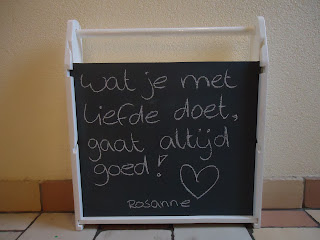 Wat je met
liefde doet,
gaat altijd
goed!
Rosanne